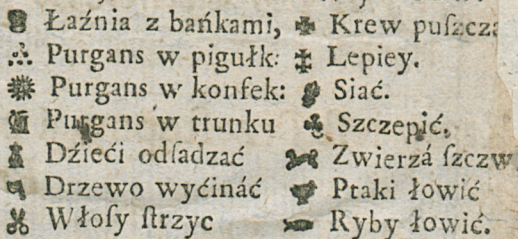 Łaźnia z bańkami,
Purgans w pigułk:
Purgans w konfek:
Purgans w trunku
Dźieći odſadzać
Drzewo wyćináć
Włoſy ſtrzyc
Krew puſzcza
Lepiey.
Siać.
Szczepić.
Zwierzá ſzczw
Ptaki łowić
Ryby łowić.